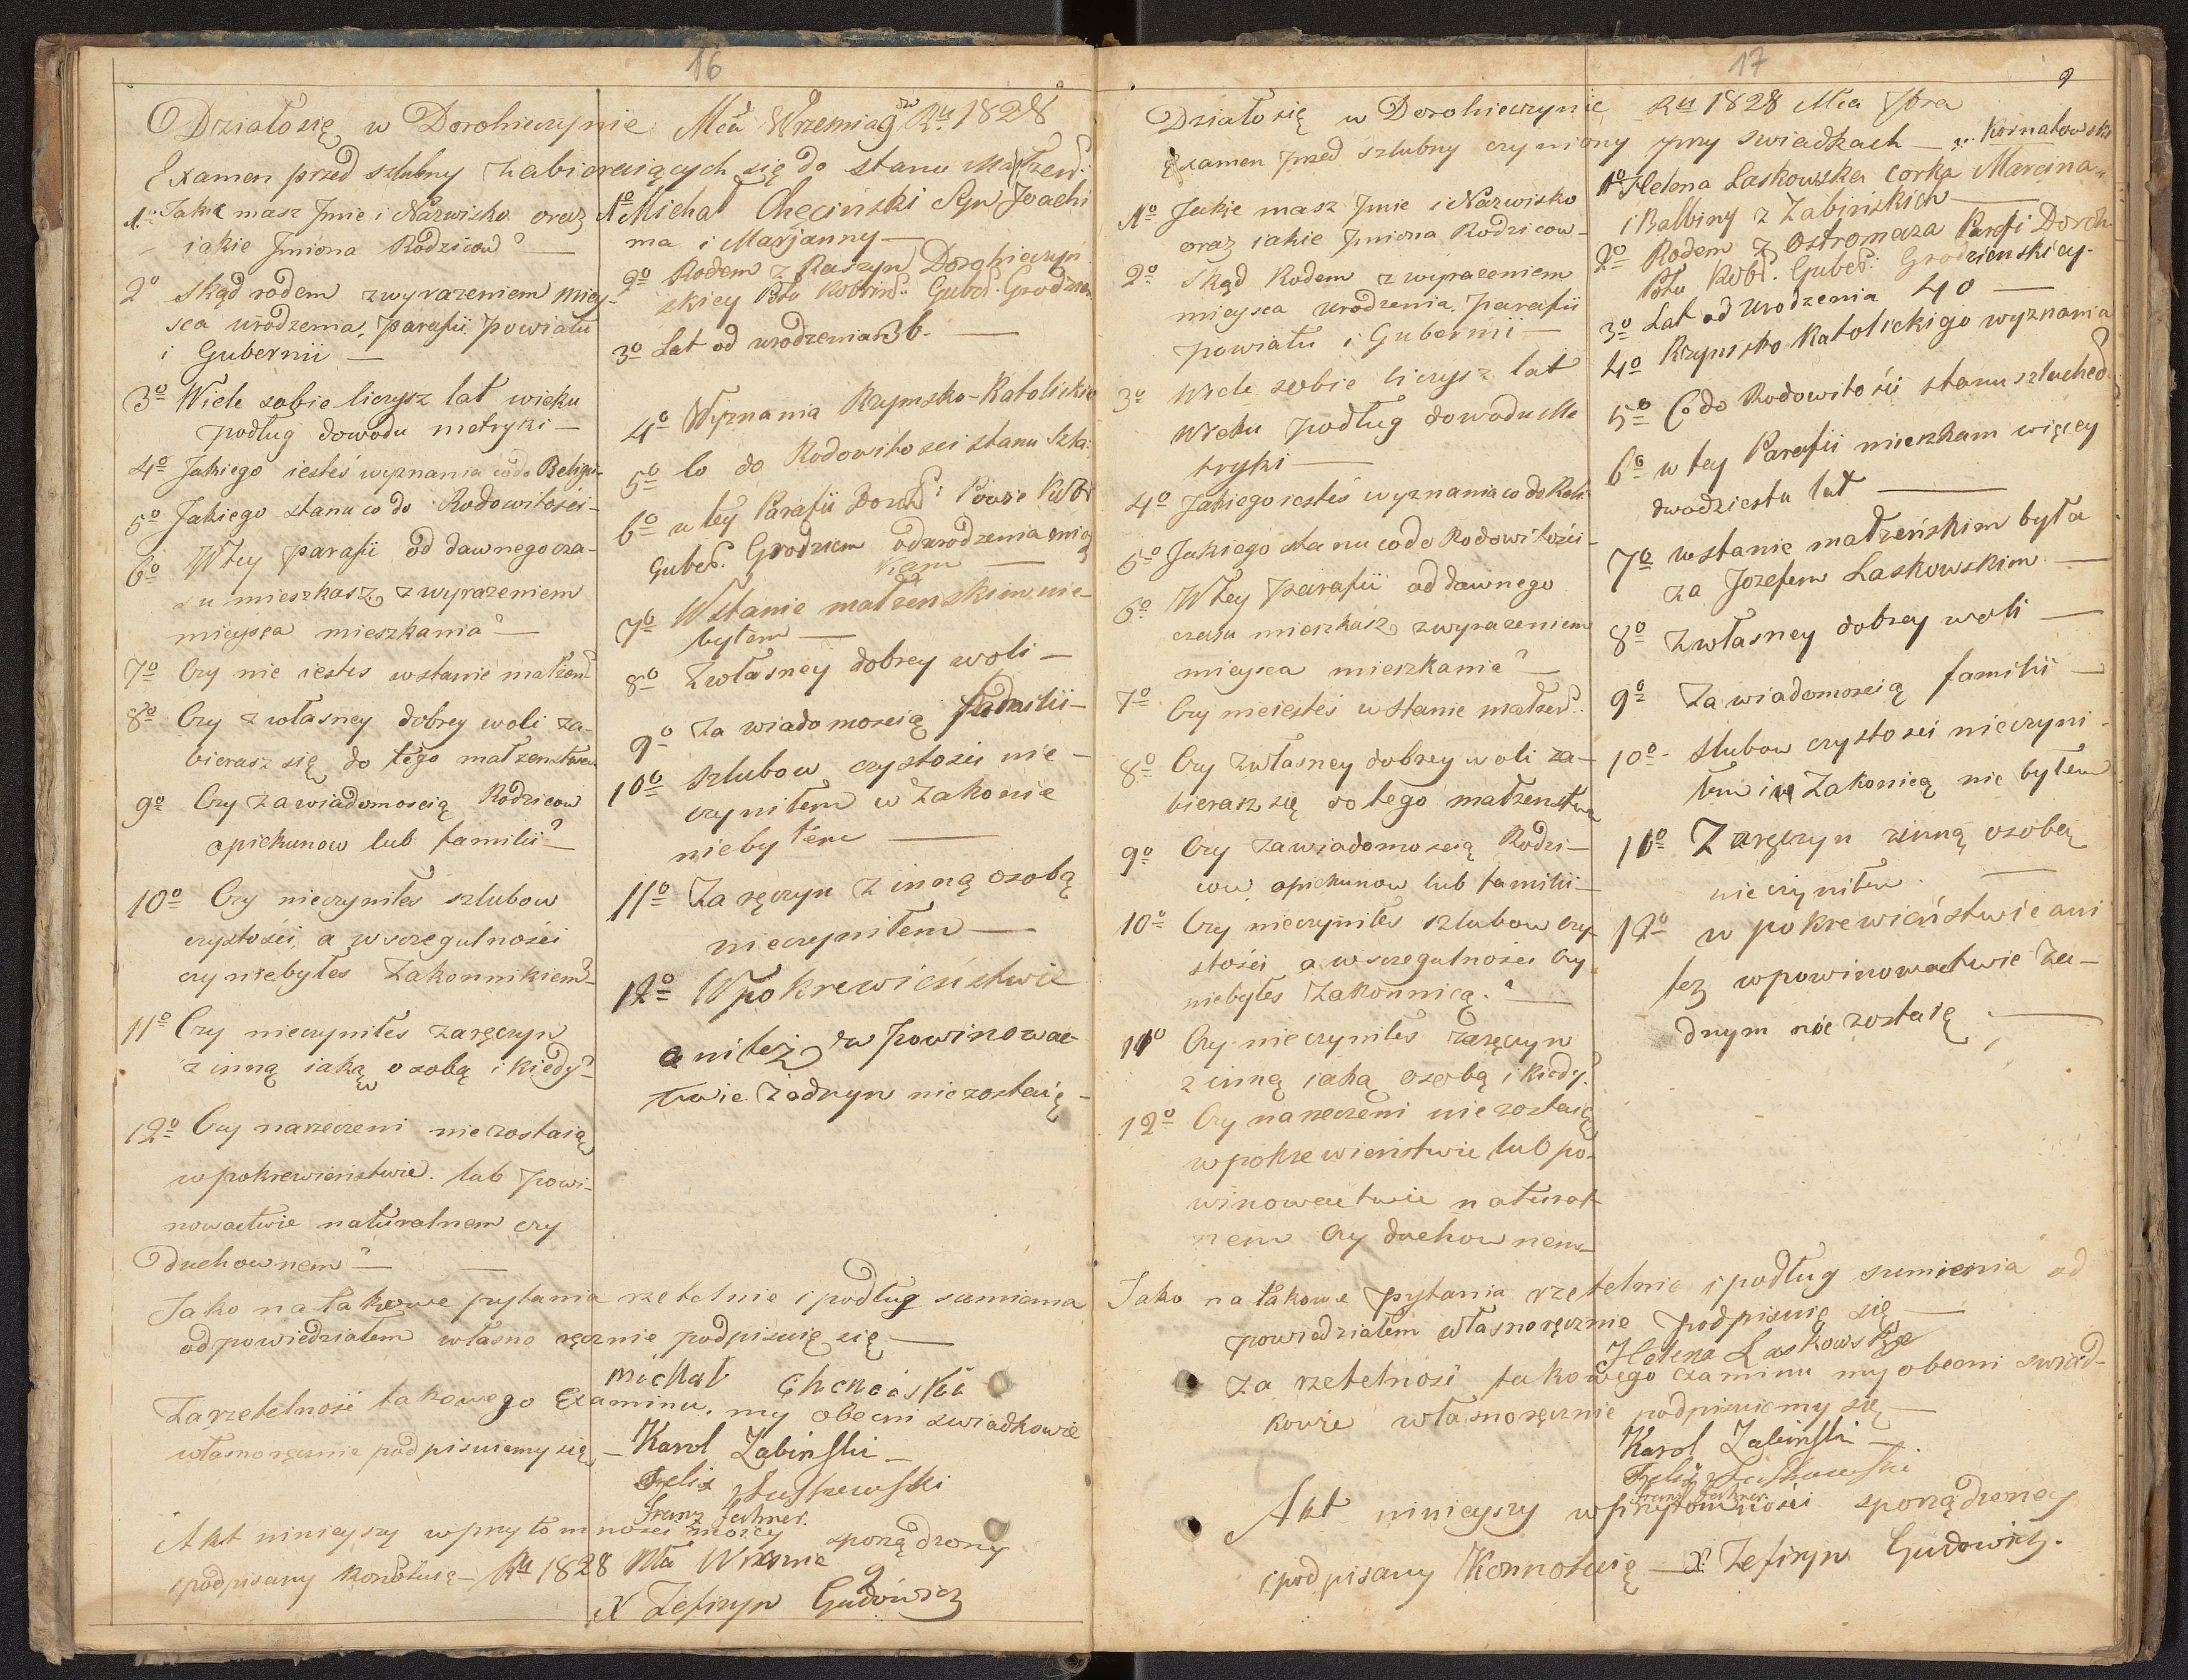 16
Działo się w Dorohiczynie Mca Wrzesnia 9 Ru 1828
Examen przed szlubny zabieraiących się do stanu Małżeń:
1º Jakie masz Jmie i Nazwisko oraz
iakie Jmiona Rodzicow?
2º skąd rodem zwyrazeniem miey-
sca urodzenia, parafii powiatu
i Gubernii —
3º Wiele sobie liczysz lat wieku
podług dowodu metryki —
4º Jakiego iesteś wyznania co do Religii-
5º Jakiego stanu co do Rodowitosci-
6º Wtey parafii od dawnego cza-
su mieszkasz, z wyrazeniem
mieysca mieszkania? —
7º Czy nie iestes wstanie małżeń
8º Czy z własney dobrey woli za-
bierasz się do tego małzenstwa
9º Czy za wiadomoscią Rodzicow
opiekunow lub familii? —
10º Czy nieczyniłes szlubow
czystości, a wszczegulności
czy niebyłes Zakonnikiem? —
11º Czy nieczyniłes zaręczyn
z inną iaką osobą i kiedy? —
12º Czy narzeczeni niezostaią
wpokrewieństwie lub powi-
nowactwie naturalnem czy
duchownem? —
1º Michał Chęcinski Syn Joachi
ma i Marjanny —
2º Rodem z Raszyn Dorohiczyn
skiey Ptu Kobrins: Guber. Grodzien
3º Lat od urodzenia 36. —
4º Wyznania Rzymsko-Katolickie
5º Co do Rodowitosci stanu Szla:
6º w tey Parafii Doroh: Powie Kobr
Guber. Grodzien od urodzenia mie
szkam —
7º Wstanie małzenskim nie-
byłem —
8º Zwłasney dobrey woli —
9º Za wiadomoscią familii —
10º Szlubow czystości nie —
czyniłem w Zakonie
niebyłem —
11º Zaręczyn z inną osobą
nieczyniłem —
12º Wpokrewieństwie
ani też w powinowac-
twie żadnym niezostaię —
Jako na takowe pytania rzetelnie i podług sumienia
odpowiedziałem własno ręcznie podpisuię się —
Michał Chenciski
Zarzetelność takowego Examinu, my obecni swiadkowie
własnoręcznie podpisuiemy się — Karol Zabinski —
Felix Łuszewski
Franz Fechner.
Akt ninieyszy wprzytomnosci moiey sporządzony
i podpisany konotuię — Ru 1828 Mca Wrzesnia 9
X Zefiryn Gudowicz
17
9
Działo się w Dorohiczynie Ru 1828 Mca 7bra
Examen przed szlubny czyniony przy swiadkach — Kornatowski
1º Jakie masz Jmie i Nazwisko
oraz iakie Jmiona Rodzicow —
2º Skąd Rodem z wyrazeniem
mieysca urodzenia, parafii
powiatu i Gubernii —
3º Wiele sobie liczysz lat
wieku podług dowodu Me
tryki —
4º Jakiego iesteś wyznania co do Reli
5º Jakiego stanu co do Rodowitości —
6º Wtey parafii od dawnego
czasu mieszkasz, z wyrazeniem
mieysca mieszkania? —
7º Czy nieiesteś w stanie małżeń:
8º Czy zwłasney dobrey woli za-
bierasz się do tego małzenstwa
9º Czy zawiadomoscią Rodzi-
cow opiekunow lub familii —
10º Czy nieczyniłes szlubow czy-
stości, a wszczegulności czy
niebyłes Zakonnicą? —
11º Czy nieczyniłes zaręczyn
z inną iaką osobą i kiedy?
12º Czy narzeczeni niezostaią
wpokrewieństwie lub po-
winowactwie natural-
nem czy duchownem —
1º Helena Laskowska corka Marcina
i Balbiny z Zabinskich —
2º Rodem z Ostromecza Parafi Doroh-
Ptu Kobr. Guber: Grodzienskiey-
3º Lat od urodzenia 40 —
4º Rzymsko Katolickigo wyznania
5º Co do Rodowitości stanu szlached
6º w tey Parafii mieszkam więcey
dwadziestu lat —
7º wstanie małżeńskim była
za Jozefem Laskowskim —
8º Zwłasney dobrey woli —
9º Za wiadomoscią familii —
10º Slubow czystosci nieczyni-
łem i w Zakonicą nie byłem
11º Zaręczyn zinną osobą
nieczyniłem —
12º w pokrewieństwie ani
tez wpowinowactwie ża-
dnym nie zostaię —
Jako na takowe pytania rzetelnie i podług sumienia od
powiedziałem własnoręcznie podpisuię się —
Helena Laskowska
Za rzetelnosć takowego Examinu my obecni swiad-
kowie własnoręcznie podpisuiemy się —
Karol Zabinski
Felix Łuszewski
Franz Fechner.
Akt ninieyszy wprzytomności sporządzoney
i podpisany Konnotuię — X. Zefiryn Gudowicz.